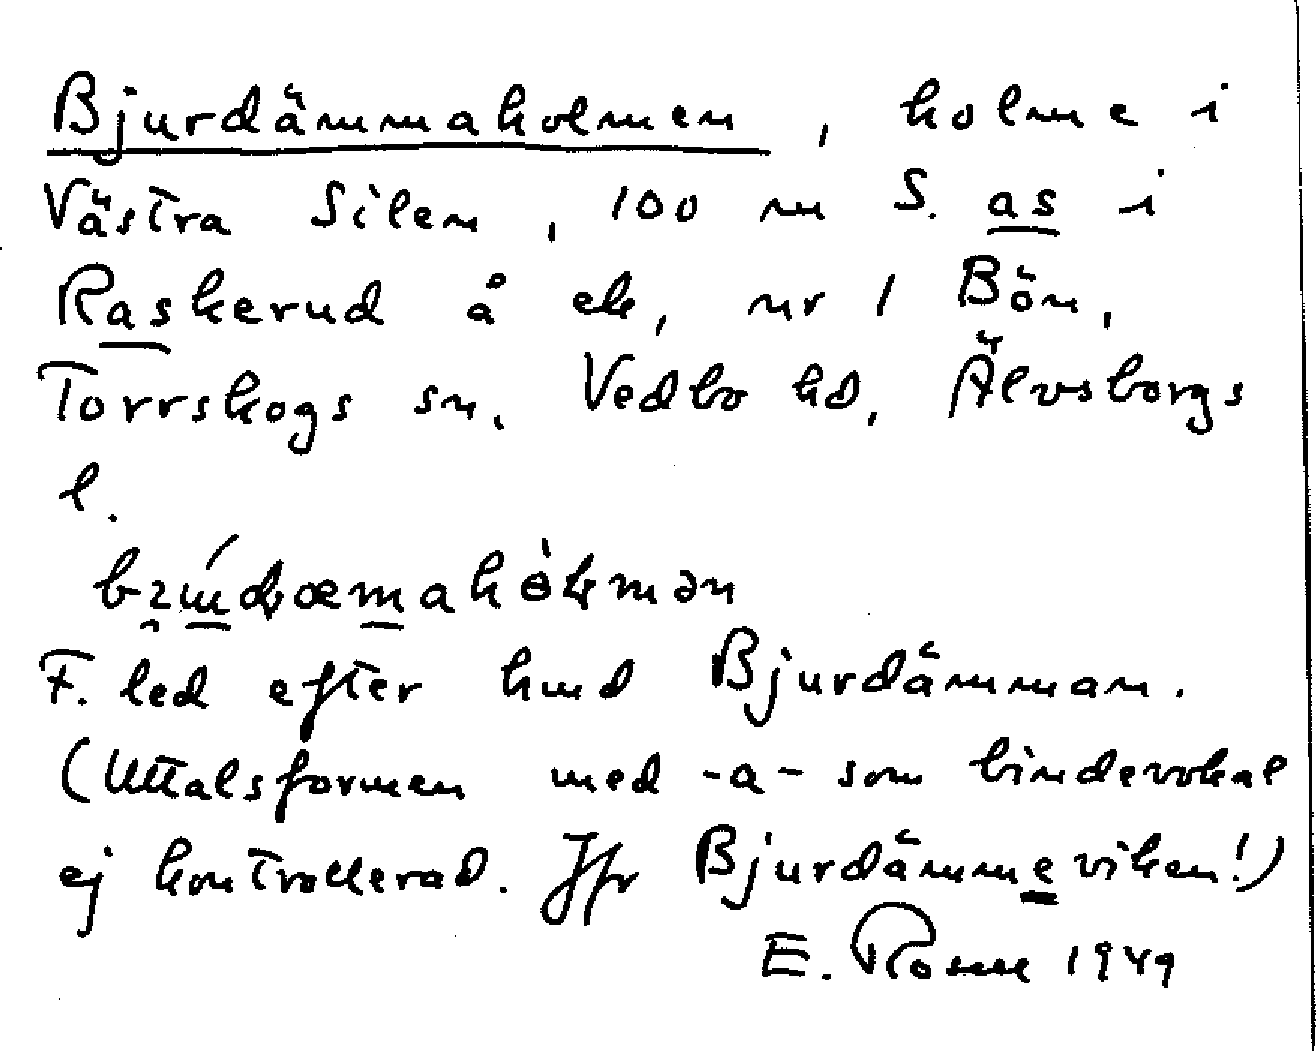 Bjurdämmaholmen, holme i
Västra Silen, 100 m S. as i
Raskerud å ek, nr 1 Bön,
Torrskogs sn. Vedbo hd, Älvsborgs
l.
F. led efter hmd Bjurdämman.
(Uttalsformen med -a- som bindevokal
ej kontrollerad. Jfr Bjurdämmeviken!)
E. 1949